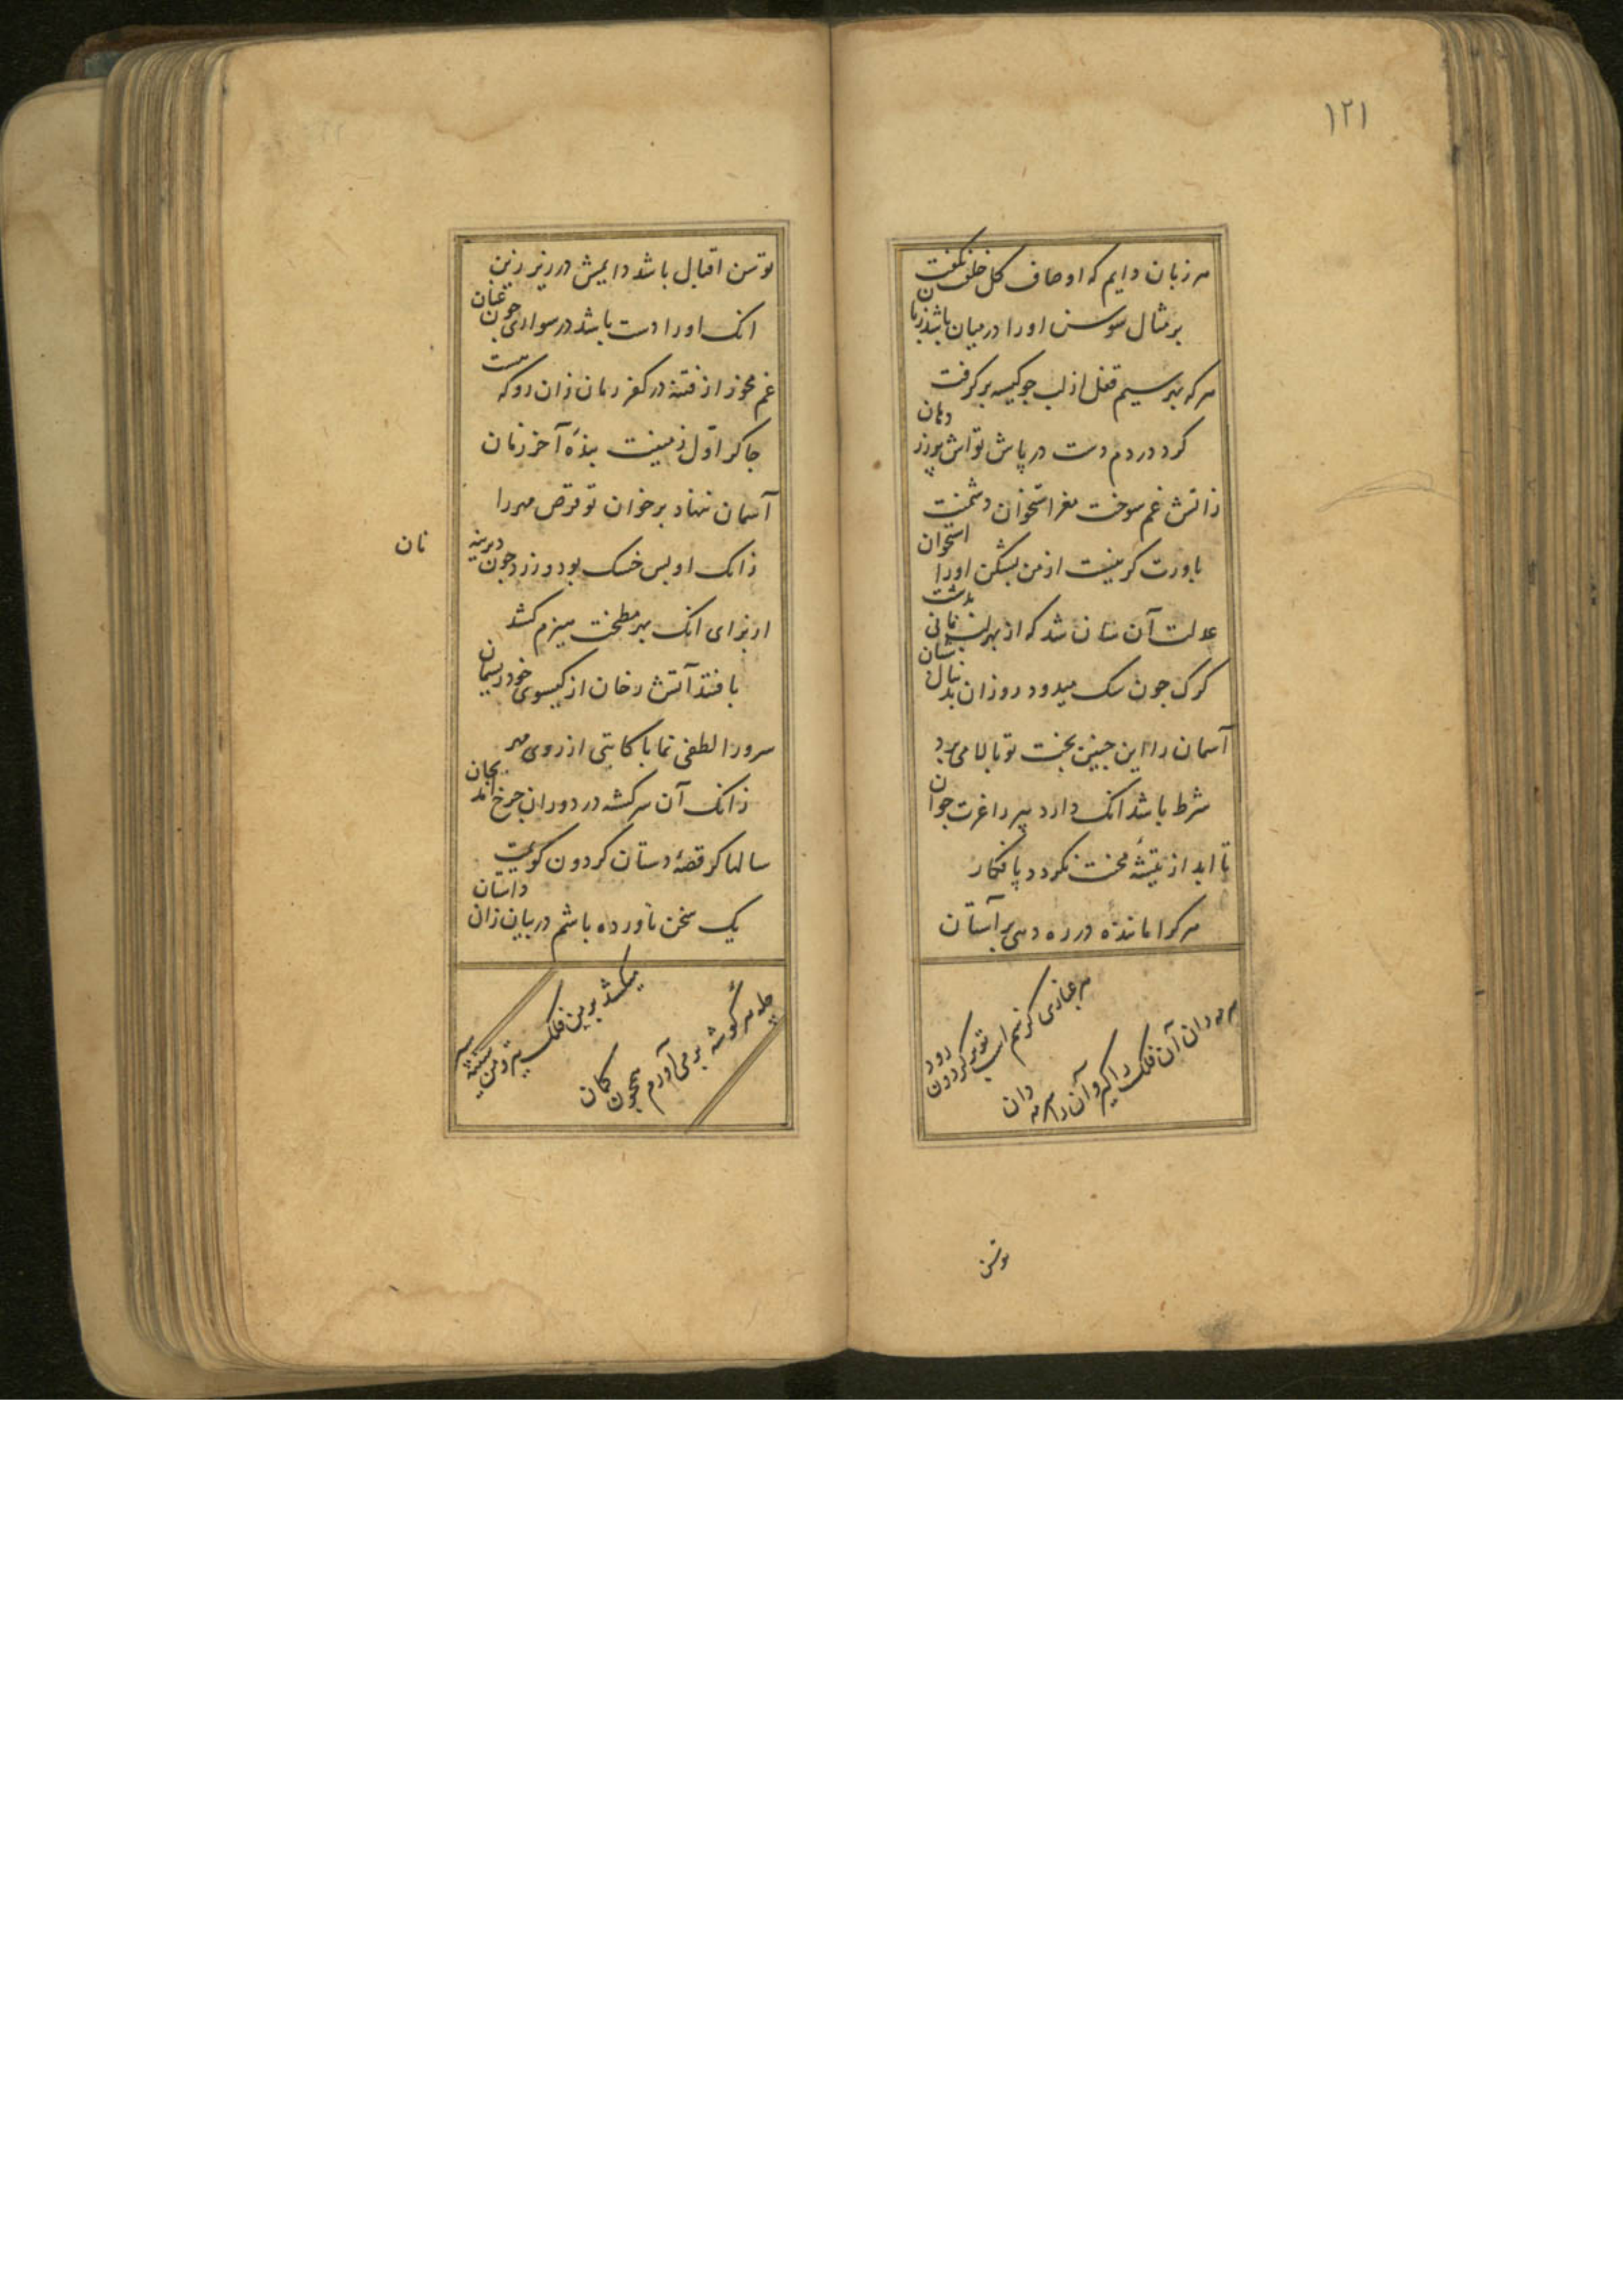 ۱۲۱
هر زبان دایم که اوصاف گل خلقت نگفت
بر مثال سوسن او را در میان باشد زبان
هر که بهر سیم قفل از لب جو کیسه بر گرفت
کرد در دم دست درپاش تواش پر زر دهان
زاتش غم سوخت مغز استخوان دشمنت
باورت گر نیست از من بشکن او را استخوان
عدلت آن سان شد که از بهر
کرک جون سک میدود روزان بدنبال شبان
آسمان را این جنین بخت تو بالا می برد
شرط باشد انک دارد پیر را عزت جوان
تا ابد از تیشه محنت نکردد پا فکار
هر کرا مانده در ره دهی بر آستان
هر غباری کز سم اسب تو بر کردون رود
مه دان آن فلک را گیر و آن را سرمه دان
توسن
توسن اقبال باشد دایمش در زیر زین
انک او را دست باشد در سواری جون عنان
غم مخور از فتنه در کفر زمان زان رو که هست
جاکر اول زمینت بنده آخر زمان
آسمان ننهاد بر خوان تو قرص مهر را
زانک او بس خشک بود و زرد جون دیرینه
نان
از برای انک بهر مطبخت هیزم کشد
بافتند آتش رخان از کیسوی خود ریسمان
سرورا لطفی نما با کاتبی از روی مهر
زانک آن سرکشته در دوران جرخ آمد بجان
سالها گر قصه دستان کردون کویمت
یک سخن ناورده باشم در بیان زان داستان
میکشد بر من فلک
جله هر گوشه بر می آورم همجون کمان